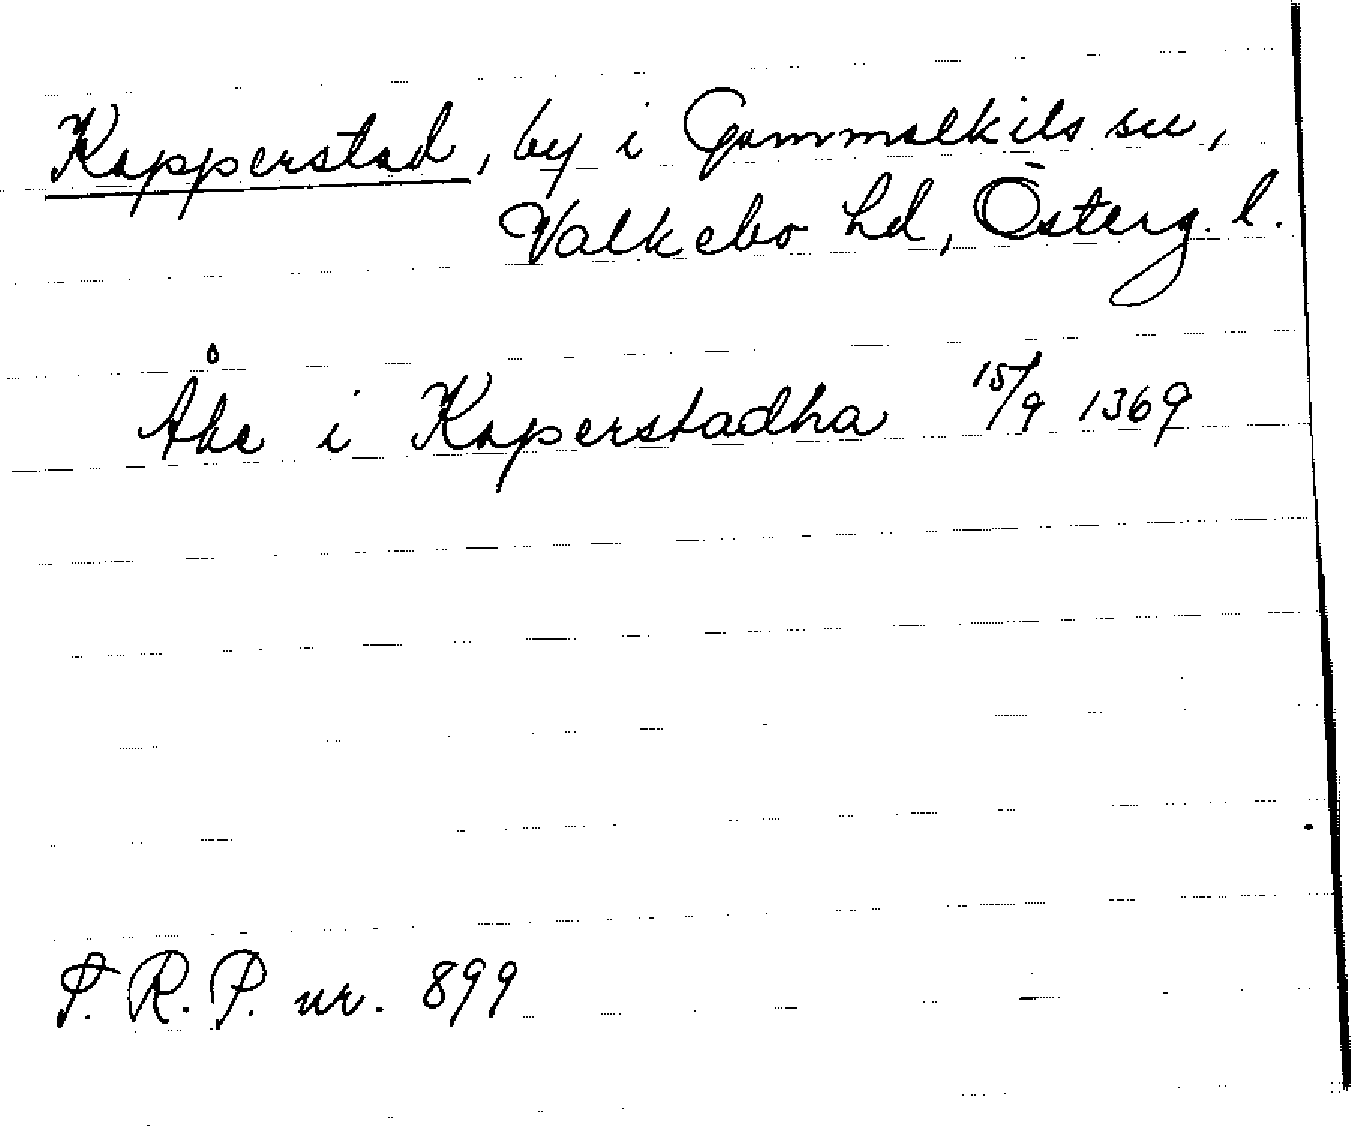 Kapperstad, by i Gammalkils sn,
Valkebo hd, Österg. l.
Åke i Kaperstadha 15/9 1369
P. R. P. nr. 899